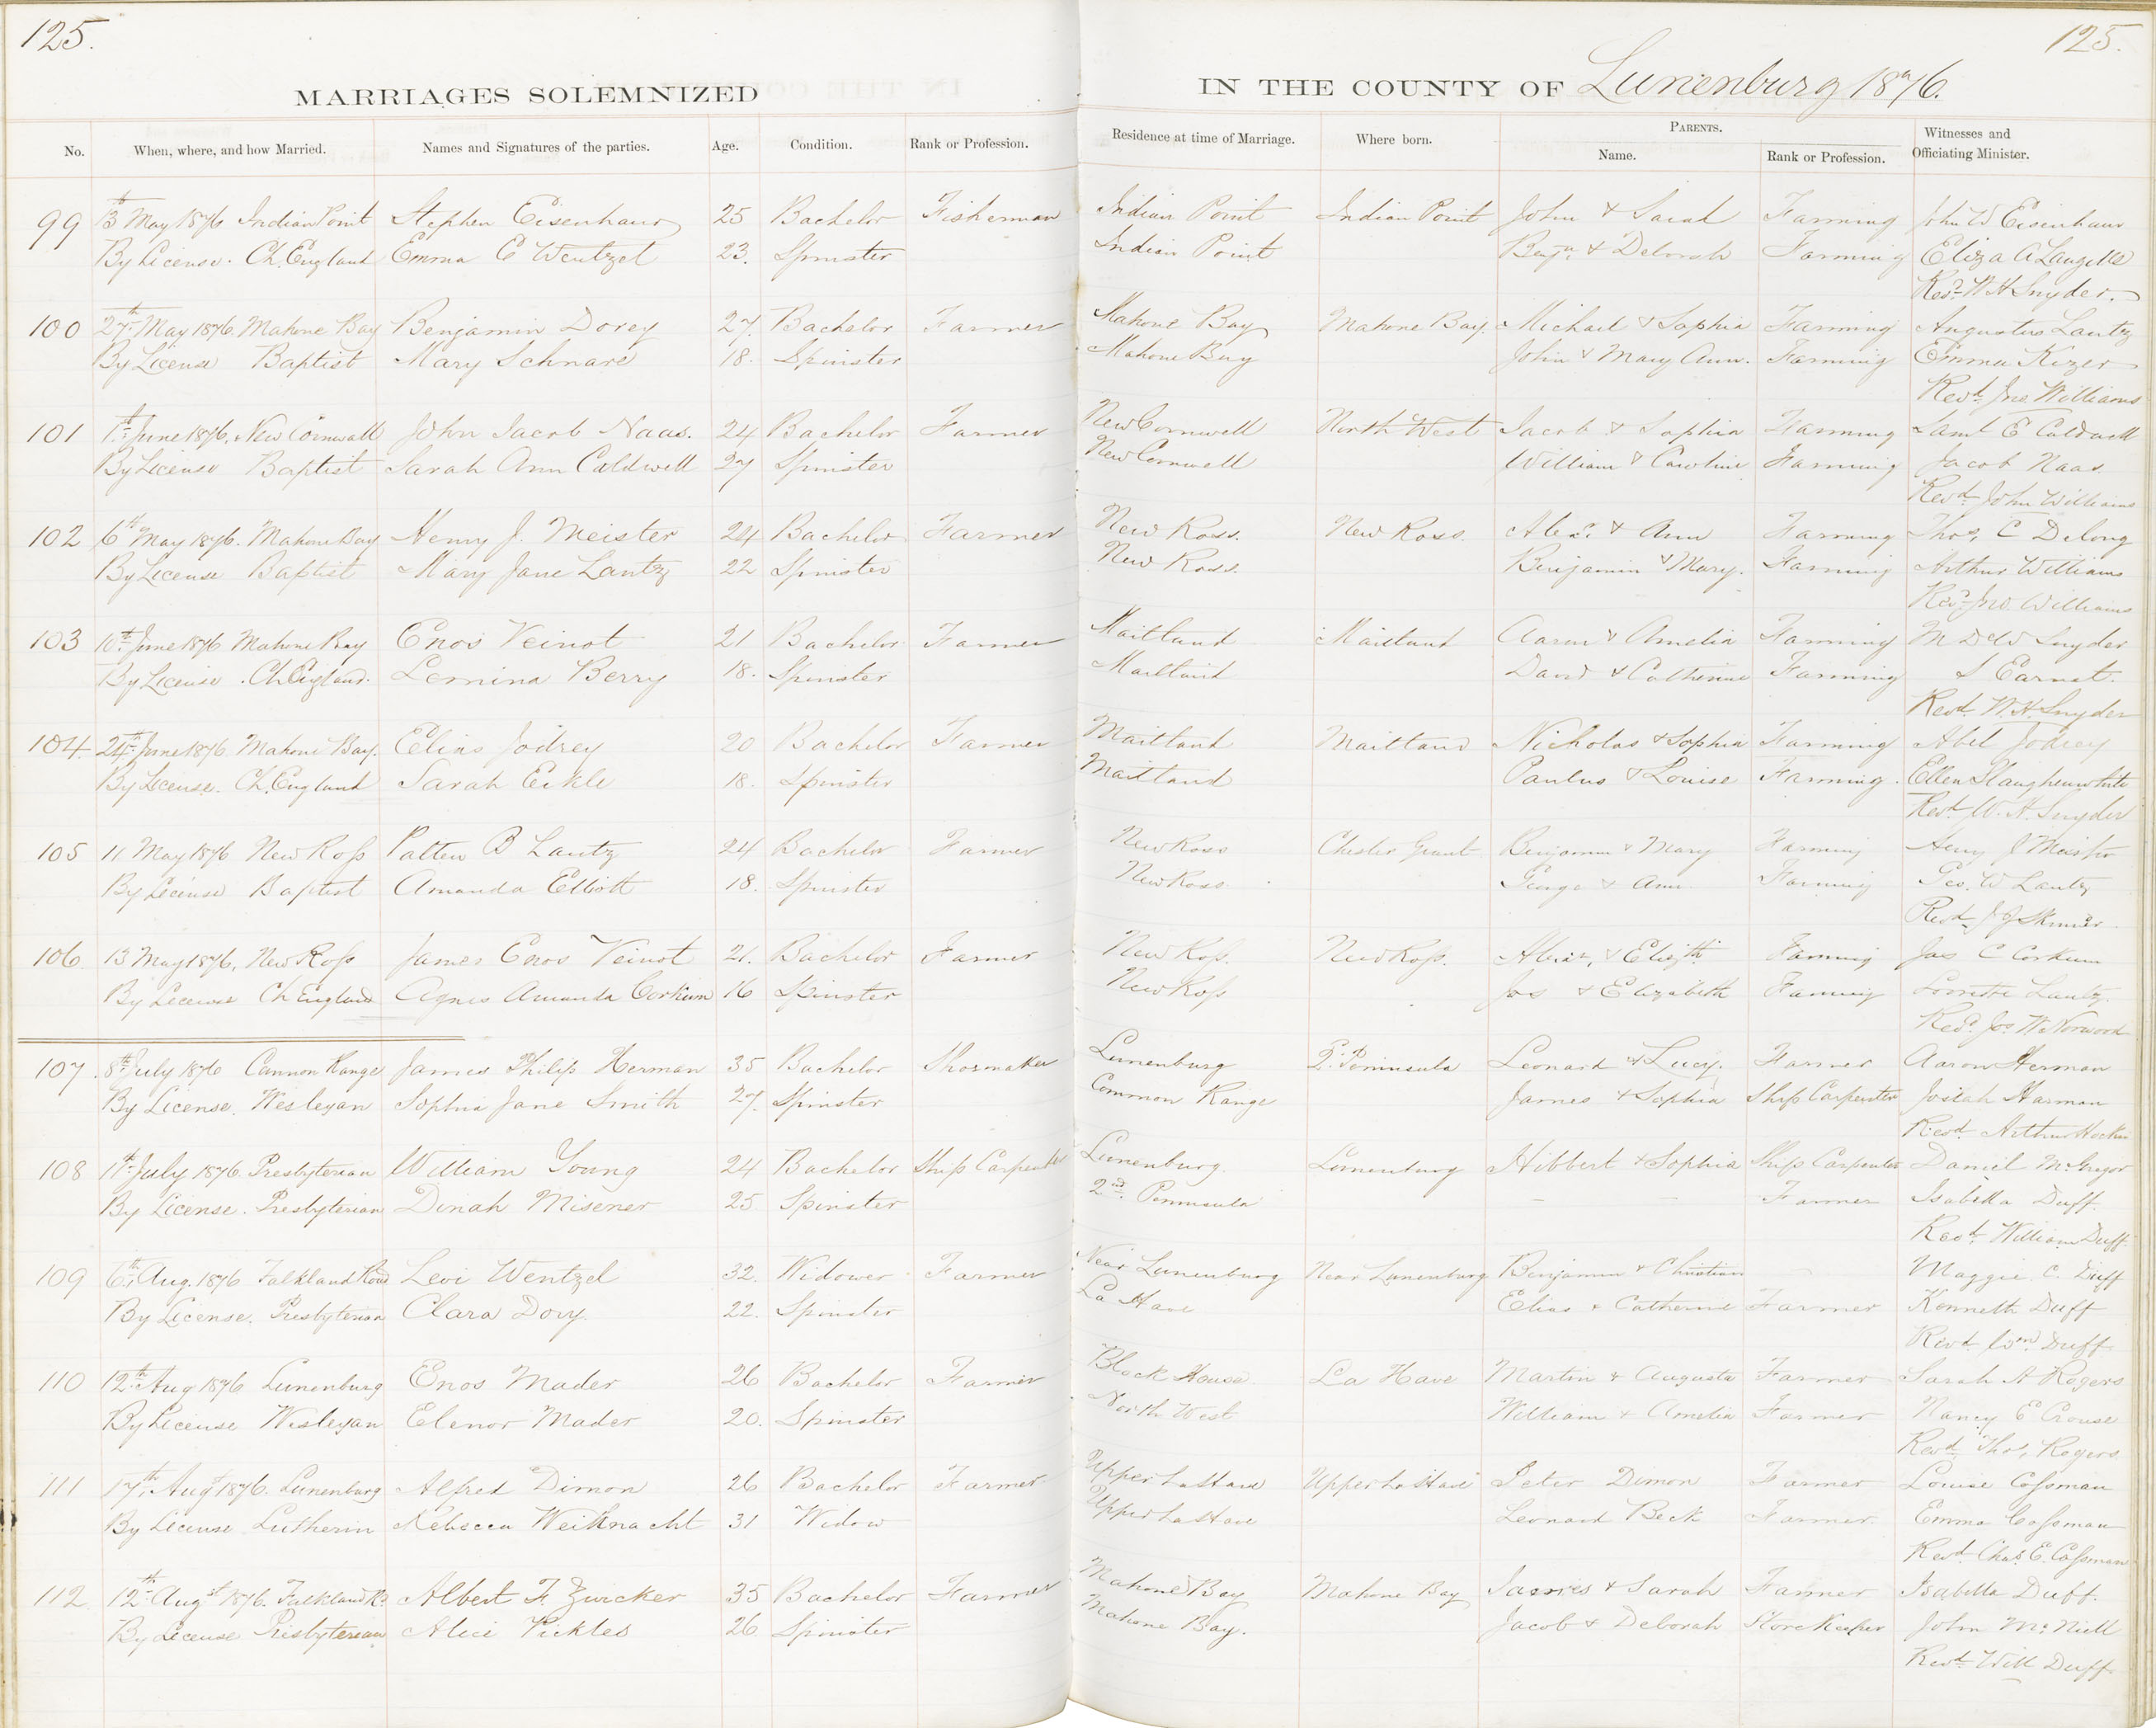 125.
125.
MARRIAGES SOLEMNIZED IN THE COUNTY OF Lunenburg 1876.
No. When, where, and how Married. Names and Signatures of the parties. Age. Condition. Rank or Profession. Residence at time of Marriage. Where born. PARENTS. Name. Rank or Profession. Witnesses and Officiating Minister.
99 13th May 1876 Indian Point Stephen Eisenhaur 25 Bachelor Fisherman Indian Point Indian Point John & Sarah Farming John W Eisenhaur
By License. Ch. England Emma E Wentzel 23. Spinster Indian Point Benjn. & Deborah Farming Eliza A Langille
Revd. W H Snyder.
100 27th May 1876. Mahone Bay Benjamin Dorey 27. Bachelor Farmer Mahone Bay Mahone Bay. Michael & Sophia Farming Augustus Lantz
By License Baptist Mary Schnare 18. Spinster Mahone Bay John & Mary Ann. Farming Emma Kizer
Revd. Jno Williams
101 1st June 1876. New Cornwall John Jacob Naas. 24 Bachelor Farmer New Cornwell North West Jacob & Sophia Farming Saml E Caldwell
By License Baptist Sarah Ann Caldwell 27 Spinster New Cornwell William & Caroline Farming Jacob Naas.
Revd. John Williams
102 6th May 1876. Mahone Bay Henry J. Meister 24 Bachelor Farmer New Ross. New Ross. Alexr. & Ann Farming Thos. C Delong
By License Baptist Mary Jane Lantz 22 Spinster New Ross. Benjamin & Mary. Farming Arthur Williams
Revd. Jno. Williams
103 10th June 1876 Mahone Bay Enos Veinot 21 Bachelor Farmer Maitland Maitland Aaron & Amelia Farming M DeW Snyder
By License. Ch England. Lemina Berry 18. Spinster Maitland David & Catherine Farming S Earnst.
Revd. W. H. Snyder
104. 24th June 1876. Mahone Bay. Elias Jodrey 20 Bachelor Farmer Maitland Maitland Nicholas & Sophia Farming Abel Jodrey
By License. Ch. England Sarah Eikle 18. Spinster Maitland Paulus & Louise Farming. Ellen Slaughenwhite
Revd. W. H. Snyder
105 11 May 1876 New Ross Patten B Lantz 24 Bachelor Farmer New Ross Chester Grant Benjamin & Mary Farming Henry J Meister
By License Baptist Amanda Elliott 18. Spinster New Ross. George & Ann Farming Geo. W Lantz
Revd. J J Skinner.
106. 13 May 1876. New Ross James Enos Veinot 21. Bachelor Farmer New Ross. New Ross. Alexr. & Elizth Farming Jas C Corkum
By License Ch England Agnes Amanda Corkum 16 Spinster New Ross Jos & Elizabeth Farming Lantz.
Revd. Jos. W Norwood
107. 8th July 1876 Cannon Range James Philip Herman 35 Bachelor Shoemaker Lunenburg Peninsula Leonard & Lucy. Farmer Aaron Herman
By License. Wesleyan Sophia Jane Smith 27. Spinster Common Range James & Sophia Ship Carpenter Josiah Harman
Revd. Arthur Hockin
108 11th July 1876. Presbyterian William Young 24 Bachelor Ship Carpenter Lunenburg. Lunenburg Hibbert & Sophia Ship Carpenter Daniel McGregor
By License. Presbyterian Dinah Misener 25 Spinster 2nd. Peninsula — — Farmer Isabella Duff.
Revd. William Duff.
109 6th Aug. 1876 Falkland Road Levi Wentzel 32. Widower Farmer Near Lunenburg Near Lunenburg Benjamin & Christian — Maggie C. Duff
By License. Presbyterian Clara Dory. 22. Spinster La Have Elias & Catherine Farmer Kenneth Duff
Revd. Wm Duff.
110 12th Aug 1876 Lunenburg Enos Mader 26 Bachelor Farmer Block House La Have Martin & Augusta Farmer Sarah A Rogers
By License Wesleyan Elenor Mader 20. Spinster North West William & Amelia Farmer Nancy E Crouse
Revd. Thos. Rogers
111 17th. Augt 1876. Lunenburg Alfred Dimon 26 Bachelor Farmer Upper La Have Upper La Have Peter Dimon Farmer Louise Cossman
By License Lutherin Rebecca Weiknacht 31 Widow Upper La Have Leonard Beck Farmer. Emma Cossman
Revd. Chas. E. Cossman
112. 12th Augst 1876. Falkland Rd. Albert F. Zwicker 35 Bachelor Farmer Mahone Bay Mahone Bay James & Sarah Farmer Isabella Duff.
By License Presbyterian Alice Pickles 26 Spinster Mahone Bay. Jacob & Deborah Store Keeper John McNiell
Revd. Will Duff.